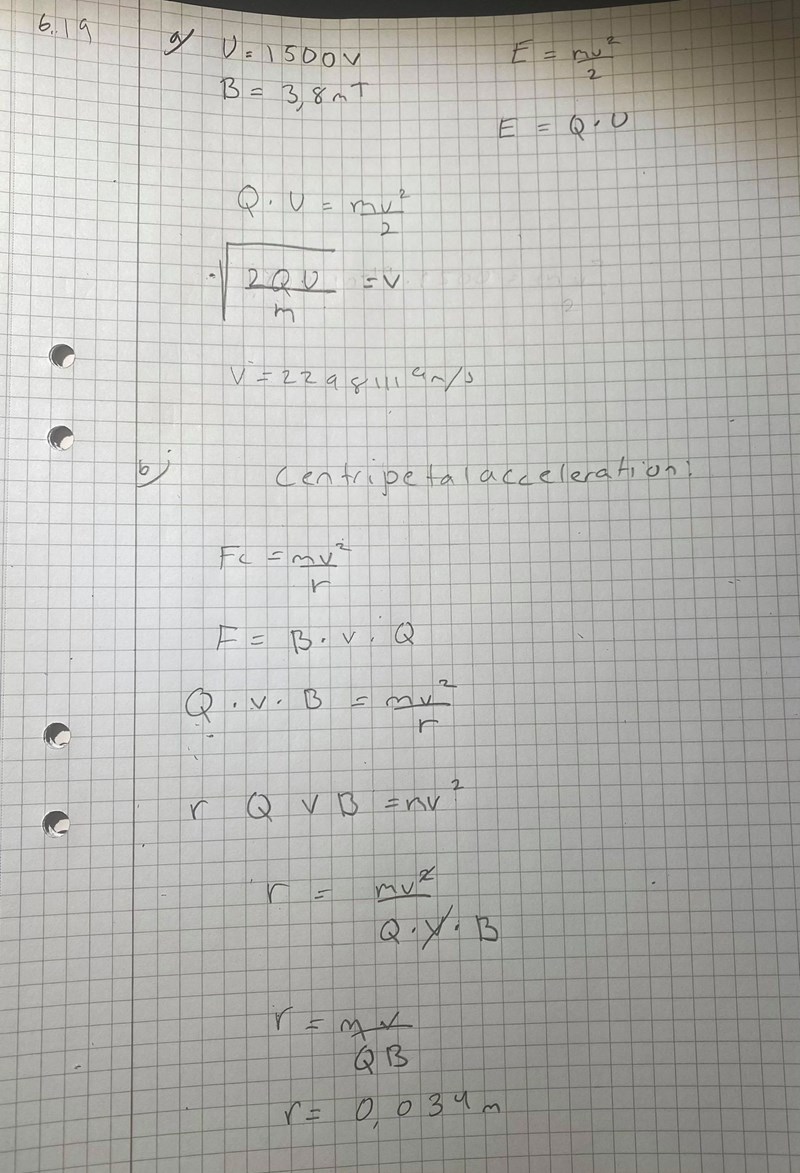 6.19
a) U = 1500V
E = mv²/2
B = 3,8mT
E = Q·U
Q·U = mv²/2
√(2QU/m) = v
V = 22981119m/s
b) Centripetal acceleration:
Fc = mv²/r
F = B·v·Q
Q·v·B = mv²/r
r Q V B = mv²
r = mv²/Q·v·B
r = mv/QB
r = 0,034m